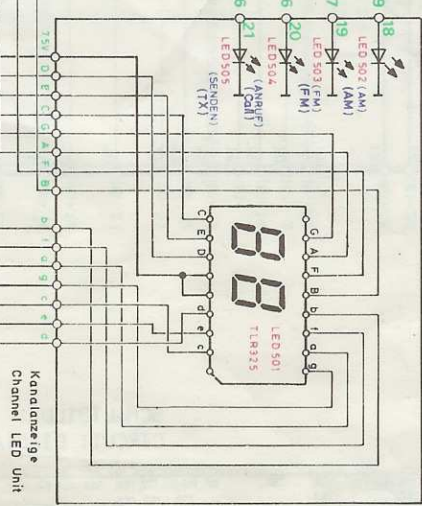 9 18
LED 502 (AM)
(AM)
7 19
LED 503 (FM)
(FM)
6 20
LED504
(ANRUF)
(Call)
6 21
LED505
(SENDEN)
(TX)
7.5V D E C G A F B b f a g c e d
G A F B b f a g
C E D d e c
88
LED 501
TLR325
Kanalanzeige
Channel LED Unit